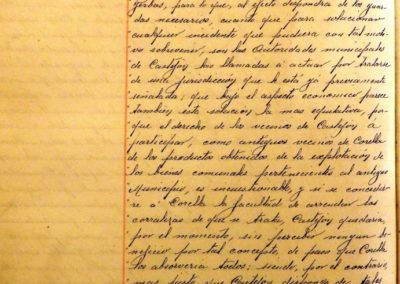 yerbas, para lo que, al efecto dispondra de los guar-
das necesarios, cuanto que para solucionar
cualquier incidente que pudiera con tal moti-
vo sobrevenir, son las Autoridades municipales
de Castejón las llamadas a actuar por tratarse
de una jurisdicción que le está ya previamente
señalada; que bajo el aspecto económico parece
también esta solución la mas equitativa, por-
que el derecho de los vecinos de Castejón á
participar, como antiguos vecinos de Corella
de los productos obtenidos de la explotación de
los bienes comunales pertenecientes al antiguo
Municipio, es incuestionable, y si se concedie-
re a Corella la facultad de arrendar las
corralizas de que se trata, Castejón quedaria,
por el momento, sin percibir ningun be-
neficio por tal concepto, al paso que Corella
los absorveria todos; siendo, por el contrario,
mas justo que Castejón disponga de tales